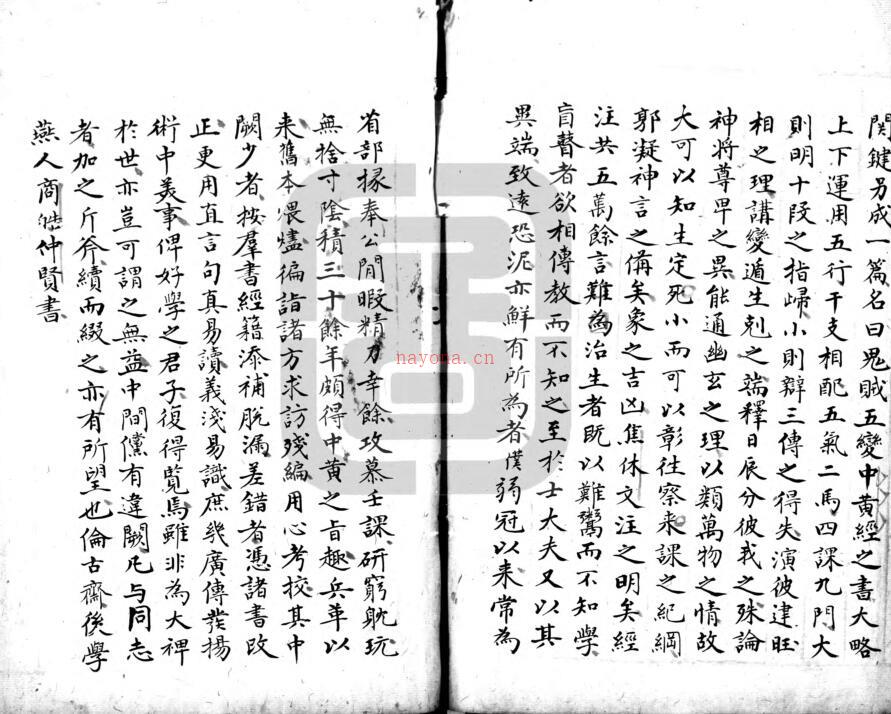 関鍵另成一篇名曰鬼賊五變中黄經之書大略
上下運用五行干支相配五氣二馬四課九門大
則明十段之指歸小則辯三傳之得失演彼建旺
相之理講變遁生剋之端釋日辰分彼我之殊論
神將尊卑之異能通幽玄之理以類萬物之情故
大可以知生定死小而可以彰徃察来課之紀綱
郭凝神言之俻矣象之吉凶焦休文注之明矣經
注共五萬餘言難為治生者既以難鬻而不知學
盲瞽者欲相傳教而不知之至於士大夫又以其
異端致遠恐泥亦鮮有所為者僕弱冠以来常為
省部掾奉公閒暇精力幸餘攻慕壬課研窮躭玩
無捨寸陰積三十餘年頗得中黄之旨趣兵革以
来舊本煨燼徧詣諸方求訪殘編用心考校其中
闕少者按羣書經籍添補脱漏差錯者憑諸書改
正更用直言句真易讀義淺易識庶幾廣傳發揚
術中美事俾好學之君子復得覧焉雖非為大裨
於世亦豈可謂之無益中間儻有違闕凡与同志
者加之斤斧續而綴之亦有所望也倫古齋後學
燕人商 仲賢書
nayona.cn